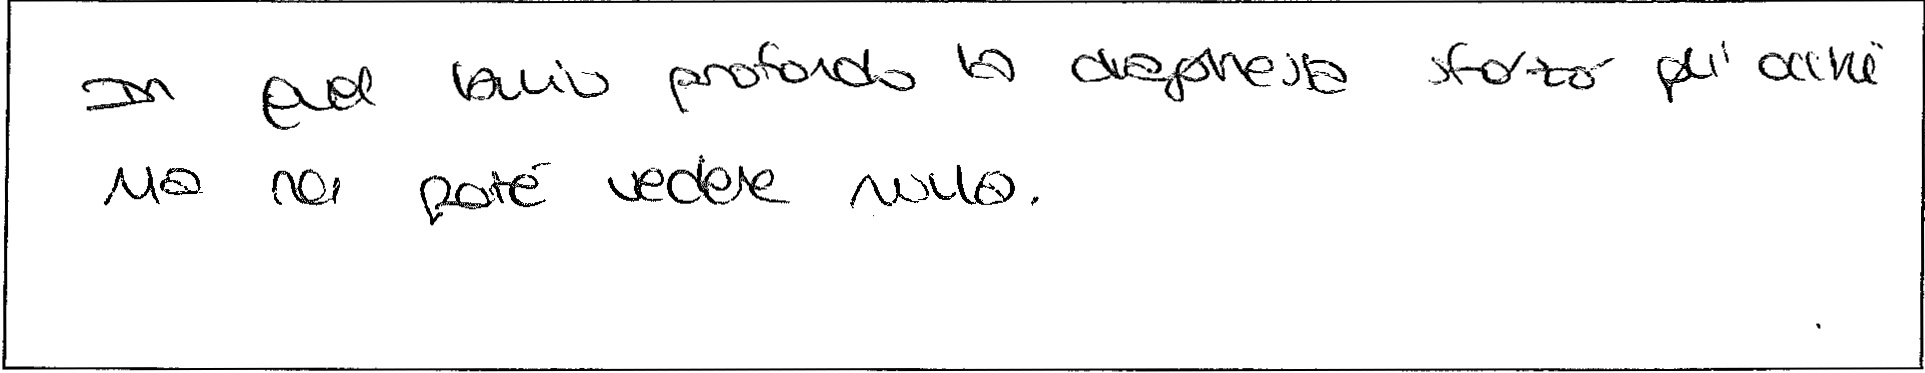 In quel buio profondo la draghessa sforzò gli occhi
Ma non poté vedere nulla.